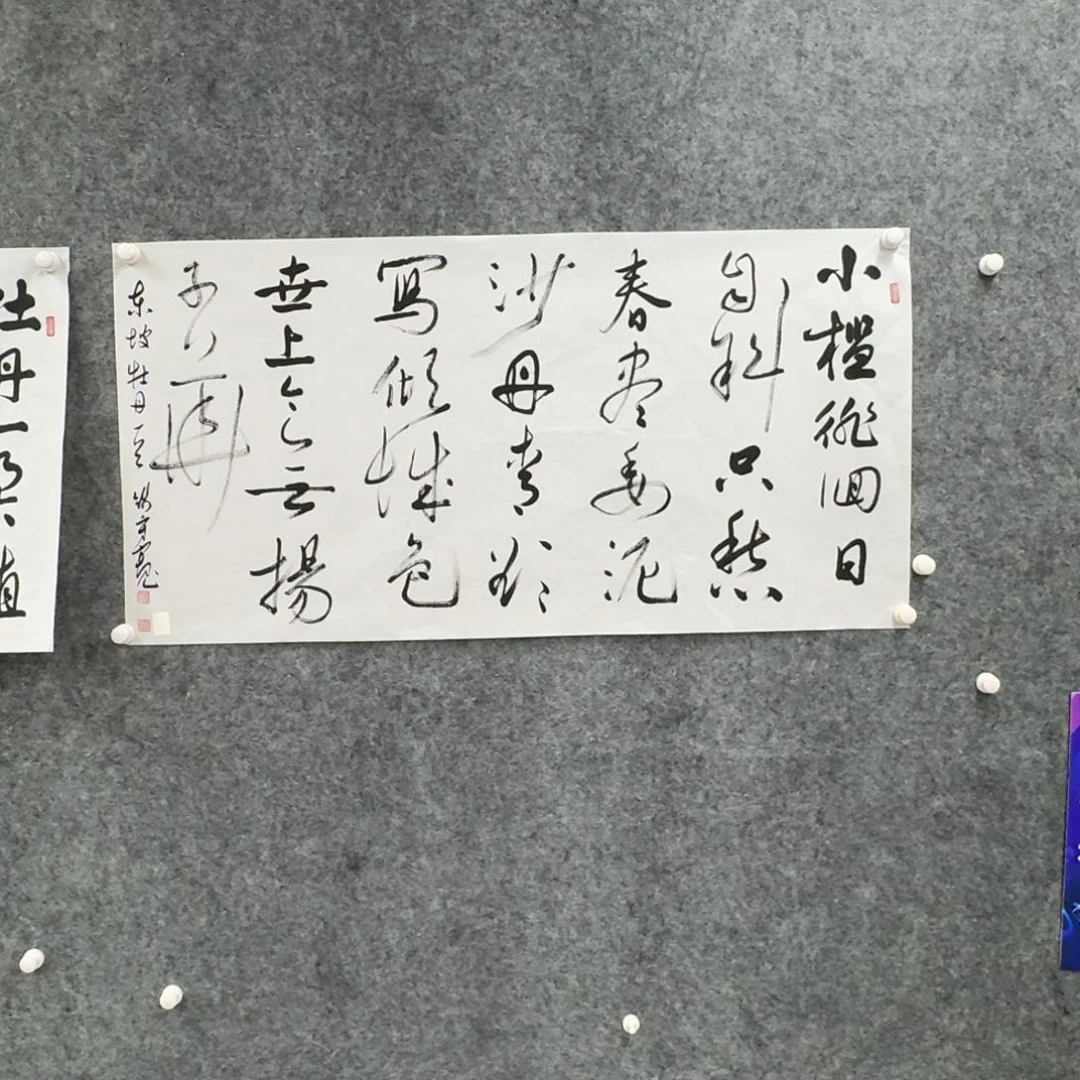 小槛徘徊日
自斜只愁
春尽委泥
沙丹青欲
寫倾城色
世上今无揚
子華
东坡牡丹一首
牡丹一